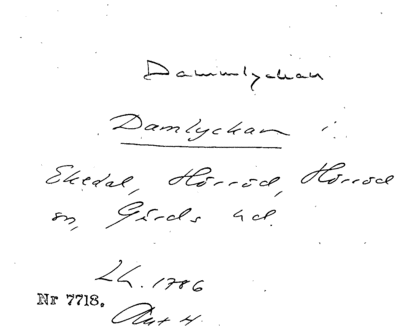 Dammlyckan
Damlyckan i
Ekedal, Hörröd, Hörröd
sn, Gärds hd.
Lh. 1786
Nr 7718.